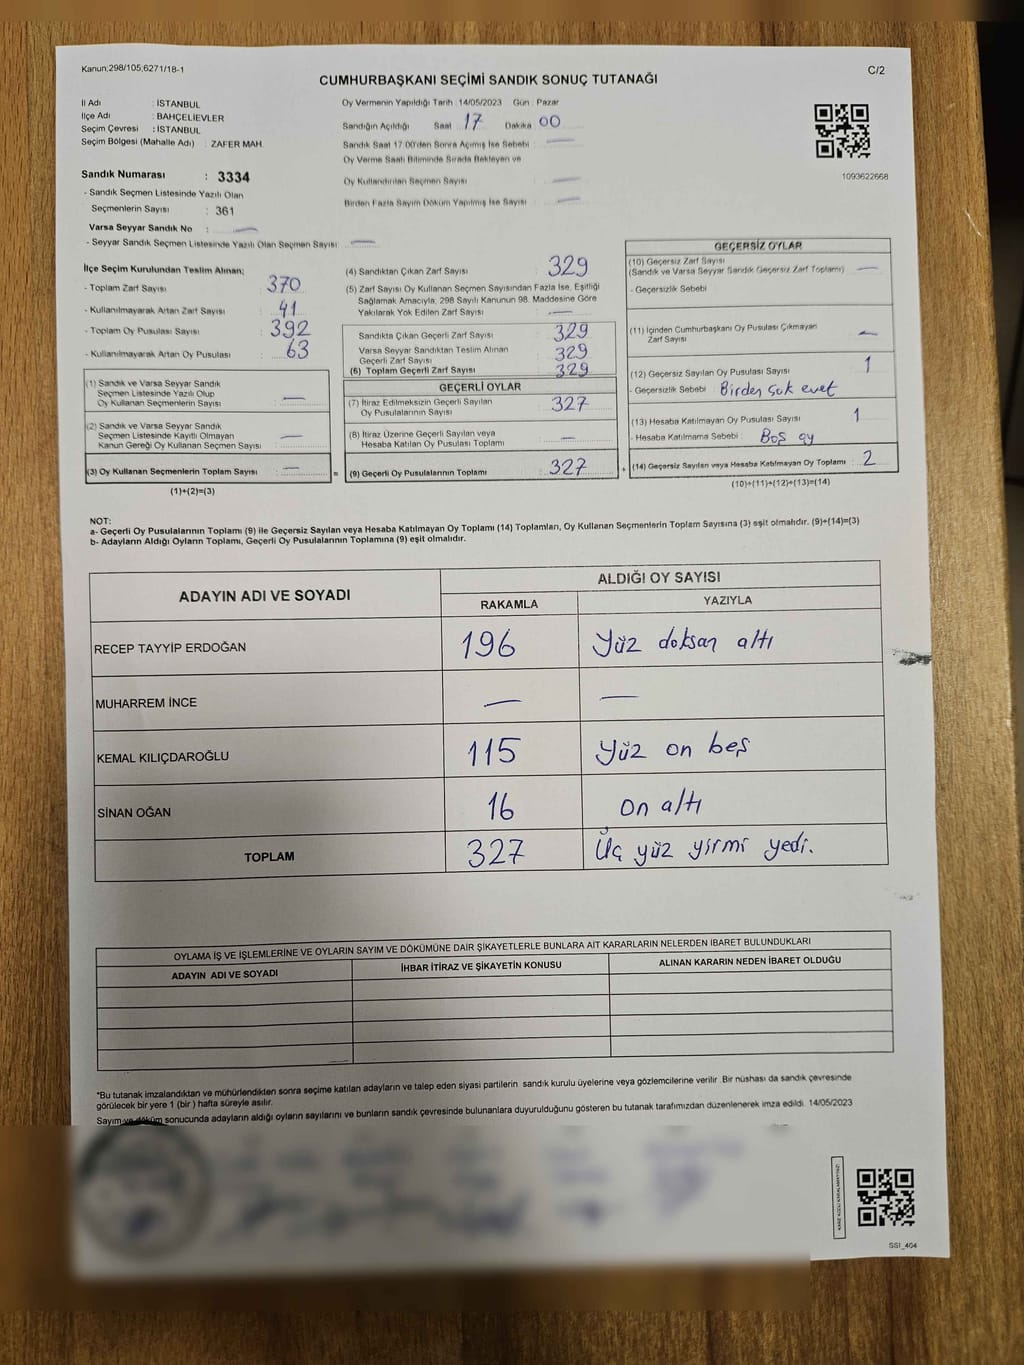 Kanun:298/105,6271/18-1
C/2
CUMHURBAŞKANI SEÇİMİ SANDIK SONUÇ TUTANAĞI
İl Adı : İSTANBUL
İlçe Adı : BAHÇELİEVLER
Seçim Çevresi : İSTANBUL
Seçim Bölgesi (Mahalle Adı) : ZAFER MAH.
Oy Vermenin Yapıldığı Tarih :14/05/2023 Gün : Pazar
Sandığın Açıldığı Saat 17 Dakika 00
Sandık Saat 17:00'den Sonra Açımış İse Sebebi : —
Oy Verme Saati Bitiminde Sırada Bekleyen ve
Oy Kullandırılan Seçmen Sayısı : —
Birden Fazla Sayım Döküm Yapılmış İse Sayısı : —
1093622668
Sandık Numarası : 3334
- Sandık Seçmen Listesinde Yazılı Olan
Seçmenlerin Sayısı : 361
Varsa Seyyar Sandık No : —
- Seyyar Sandık Seçmen Listesinde Yazılı Olan Seçmen Sayısı: —
İlçe Seçim Kurulundan Teslim Alınan;
- Toplam Zarf Sayısı : 370
- Kullanılmayarak Artan Zarf Sayısı : 41
- Toplam Oy Pusulası Sayısı : 392
- Kullanılmayarak Artan Oy Pusulası : 63
(1) Sandık ve Varsa Seyyar Sandık
Seçmen Listesinde Yazılı Olup
Oy Kullanan Seçmenlerin Sayısı : —
(2) Sandık ve Varsa Seyyar Sandık
Seçmen Listesinde Kayıtlı Olmayan
Kanun Gereği Oy Kullanan Seçmen Sayısı : —
(3) Oy Kullanan Seçmenlerin Toplam Sayısı : —
(1)+(2)=(3)
(4) Sandıktan Çıkan Zarf Sayısı : 329
(5) Zarf Sayısı Oy Kullanan Seçmen Sayısından Fazla İse, Eşitliği
Sağlamak Amacıyla, 298 Sayılı Kanunun 98. Maddesine Göre
Yakılarak Yok Edilen Zarf Sayısı : —
Sandıkta Çıkan Geçerli Zarf Sayısı : 329
Varsa Seyyar Sandıktan Teslim Alınan
Geçerli Zarf Sayısı : 329
(6) Toplam Geçerli Zarf Sayısı : 329
GEÇERLİ OYLAR
(7) İtiraz Edilmeksizin Geçerli Sayılan
Oy Pusulalarının Sayısı : 327
(8) İtiraz Üzerine Geçerli Sayılan veya
Hesaba Katılan Oy Pusulaları Toplamı : —
= (9) Geçerli Oy Pusulalarının Toplamı : 327 +
GEÇERSİZ OYLAR
(10) Geçersiz Zarf Sayısı
(Sandık ve Varsa Seyyar Sandık Geçersiz Zarf Toplamı) : —
- Geçersizlik Sebebi :
(11) İçinden Cumhurbaşkanı Oy Pusulası Çıkmayan
Zarf Sayısı : —
(12) Geçersiz Sayılan Oy Pusulası Sayısı : 1
- Geçersizlik Sebebi : Birden çok evet
(13) Hesaba Katılmayan Oy Pusulası Sayısı : 1
- Hesaba Katılmama Sebebi : Boş oy
(14) Geçersiz Sayılan veya Hesaba Katılmayan Oy Toplamı : 2
(10)+(11)+(12)+(13)=(14)
NOT:
a- Geçerli Oy Pusulalarının Toplamı (9) ile Geçersiz Sayılan veya Hesaba Katılmayan Oy Toplamı (14) Toplamları, Oy Kullanan Seçmenlerin Toplam Sayısına (3) eşit olmalıdır. (9)+(14)=(3)
b- Adayların Aldığı Oyların Toplamı, Geçerli Oy Pusulalarının Toplamına (9) eşit olmalıdır.
ADAYIN ADI VE SOYADI
ALDIĞI OY SAYISI
RAKAMLA YAZIYLA
RECEP TAYYİP ERDOĞAN 196 Yüz doksan altı
MUHARREM İNCE — —
KEMAL KILIÇDAROĞLU 115 Yüz on beş
SİNAN OĞAN 16 on altı
TOPLAM 327 Üç yüz yirmi yedi.
OYLAMA İŞ VE İŞLEMLERİNE VE OYLARIN SAYIM VE DÖKÜMÜNE DAİR ŞİKAYETLERLE BUNLARA AİT KARARLARIN NELERDEN İBARET BULUNDUKLARI
ADAYIN ADI VE SOYADI İHBAR İTİRAZ VE ŞİKAYETİN KONUSU ALINAN KARARIN NEDEN İBARET OLDUĞU
*Bu tutanak imzalandıktan ve mühürlendikten sonra seçime katılan adayların ve talep eden siyasi partilerin sandık kurulu üyelerine veya gözlemcilerine verilir. Bir nüshası da sandık çevresinde
görülecek bir yere 1 (bir) hafta süreyle asılır.
Sayım ve döküm sonucunda adayların aldığı oyların sayılarını ve bunların sandık çevresinde bulunanlara duyurulduğunu gösteren bu tutanak tarafımızdan düzenlenerek imza edildi. 14/05/2023
SSI_404